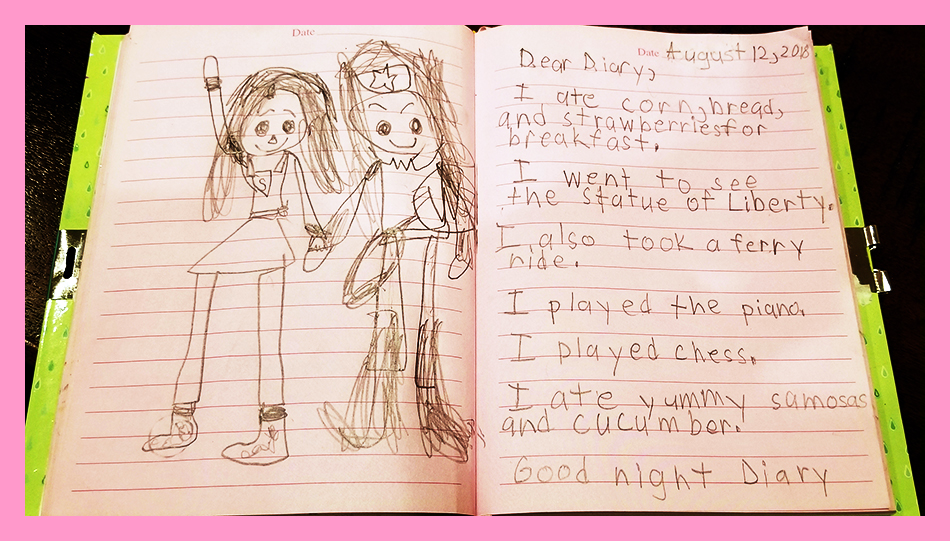 Date
S
Date August 12, 2018
Dear Diary,
I ate corn, bread,
and strawberriesfor
breakfast.
I went to see
the Statue of Liberty.
I also took a ferry
ride.
I played the piano.
I played chess.
I ate yummy samosas
and cucumber.
Good night Diary